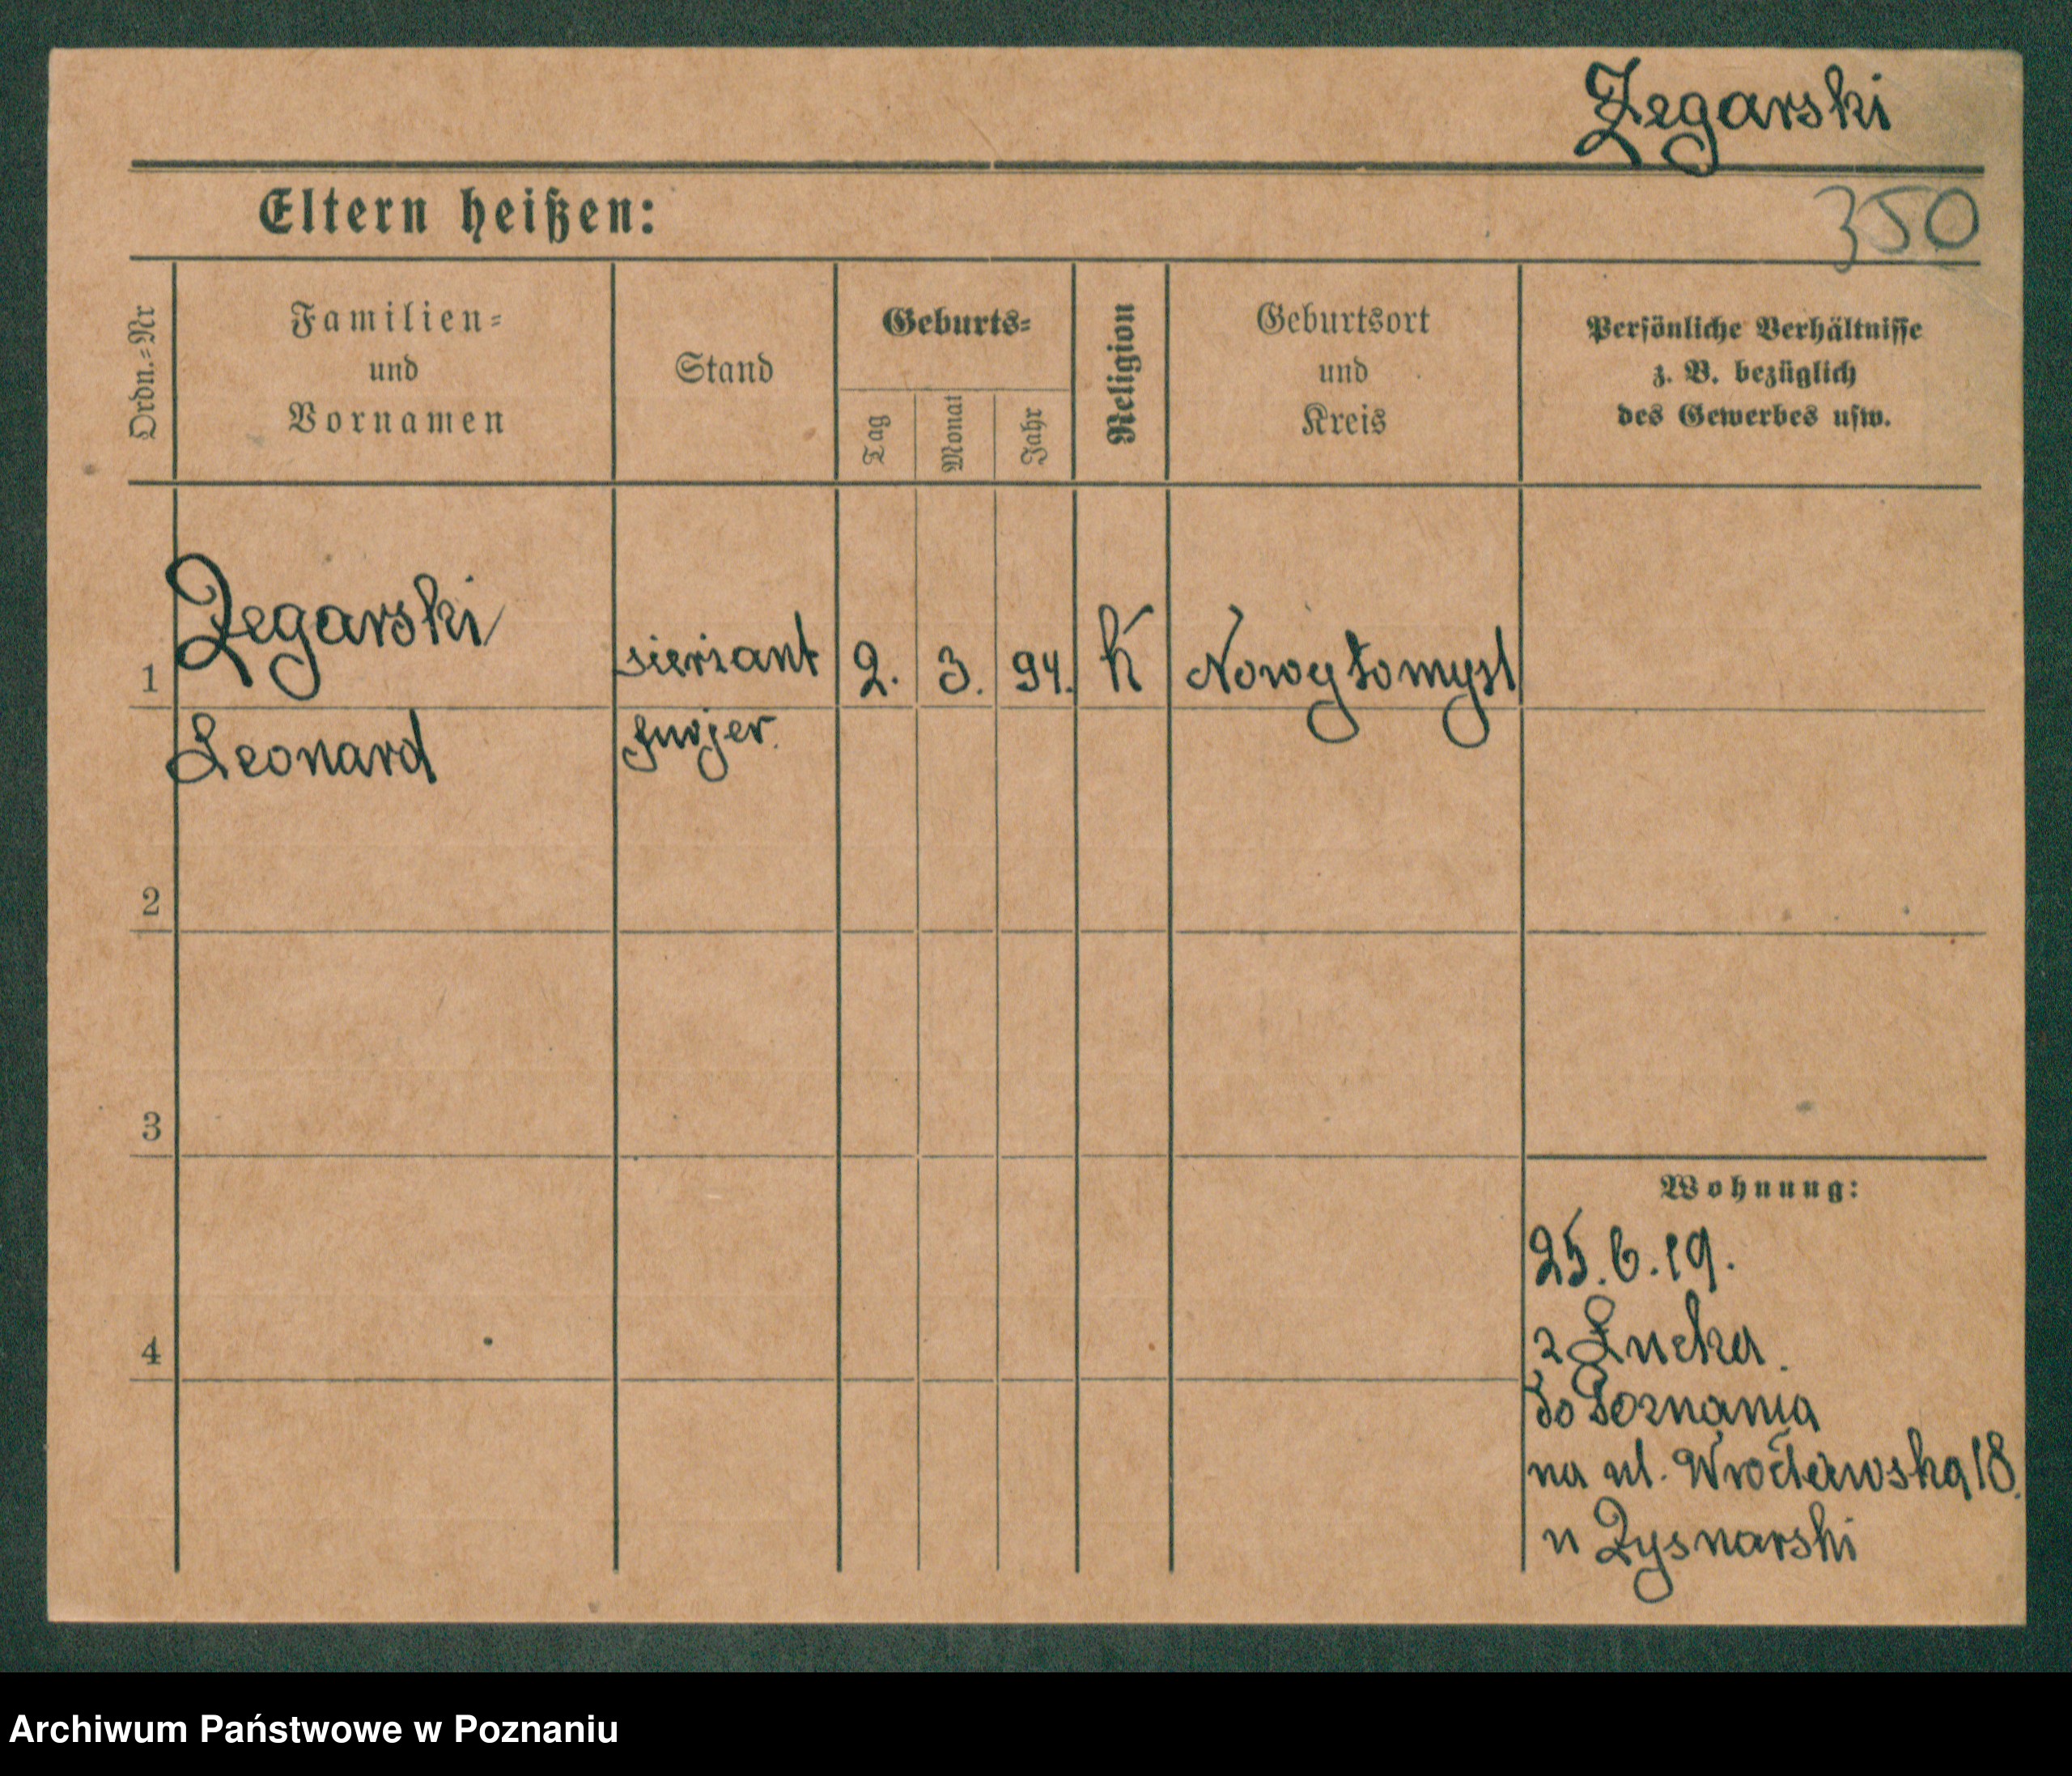 Zegarski
Eltern heißen:
350
Ordn.=Nr
Familien=
und
Vornamen
Stand
Geburts=
Tag
Monat
Jahr
Religion
Geburtsort
und
Kreis
Persönliche Verhältnisse
z. B. bezüglich
des Gewerbes usw.
1
Zegarski
sierżant
2.
3.
94.
K
Nowytomysl
Leonard
furjer.
2
3
4
Wohnung:
25.6.19.
z
do Poznania
na ul. Wrocławska 18.
u Zysnarski
Archiwum Państwowe w Poznaniu